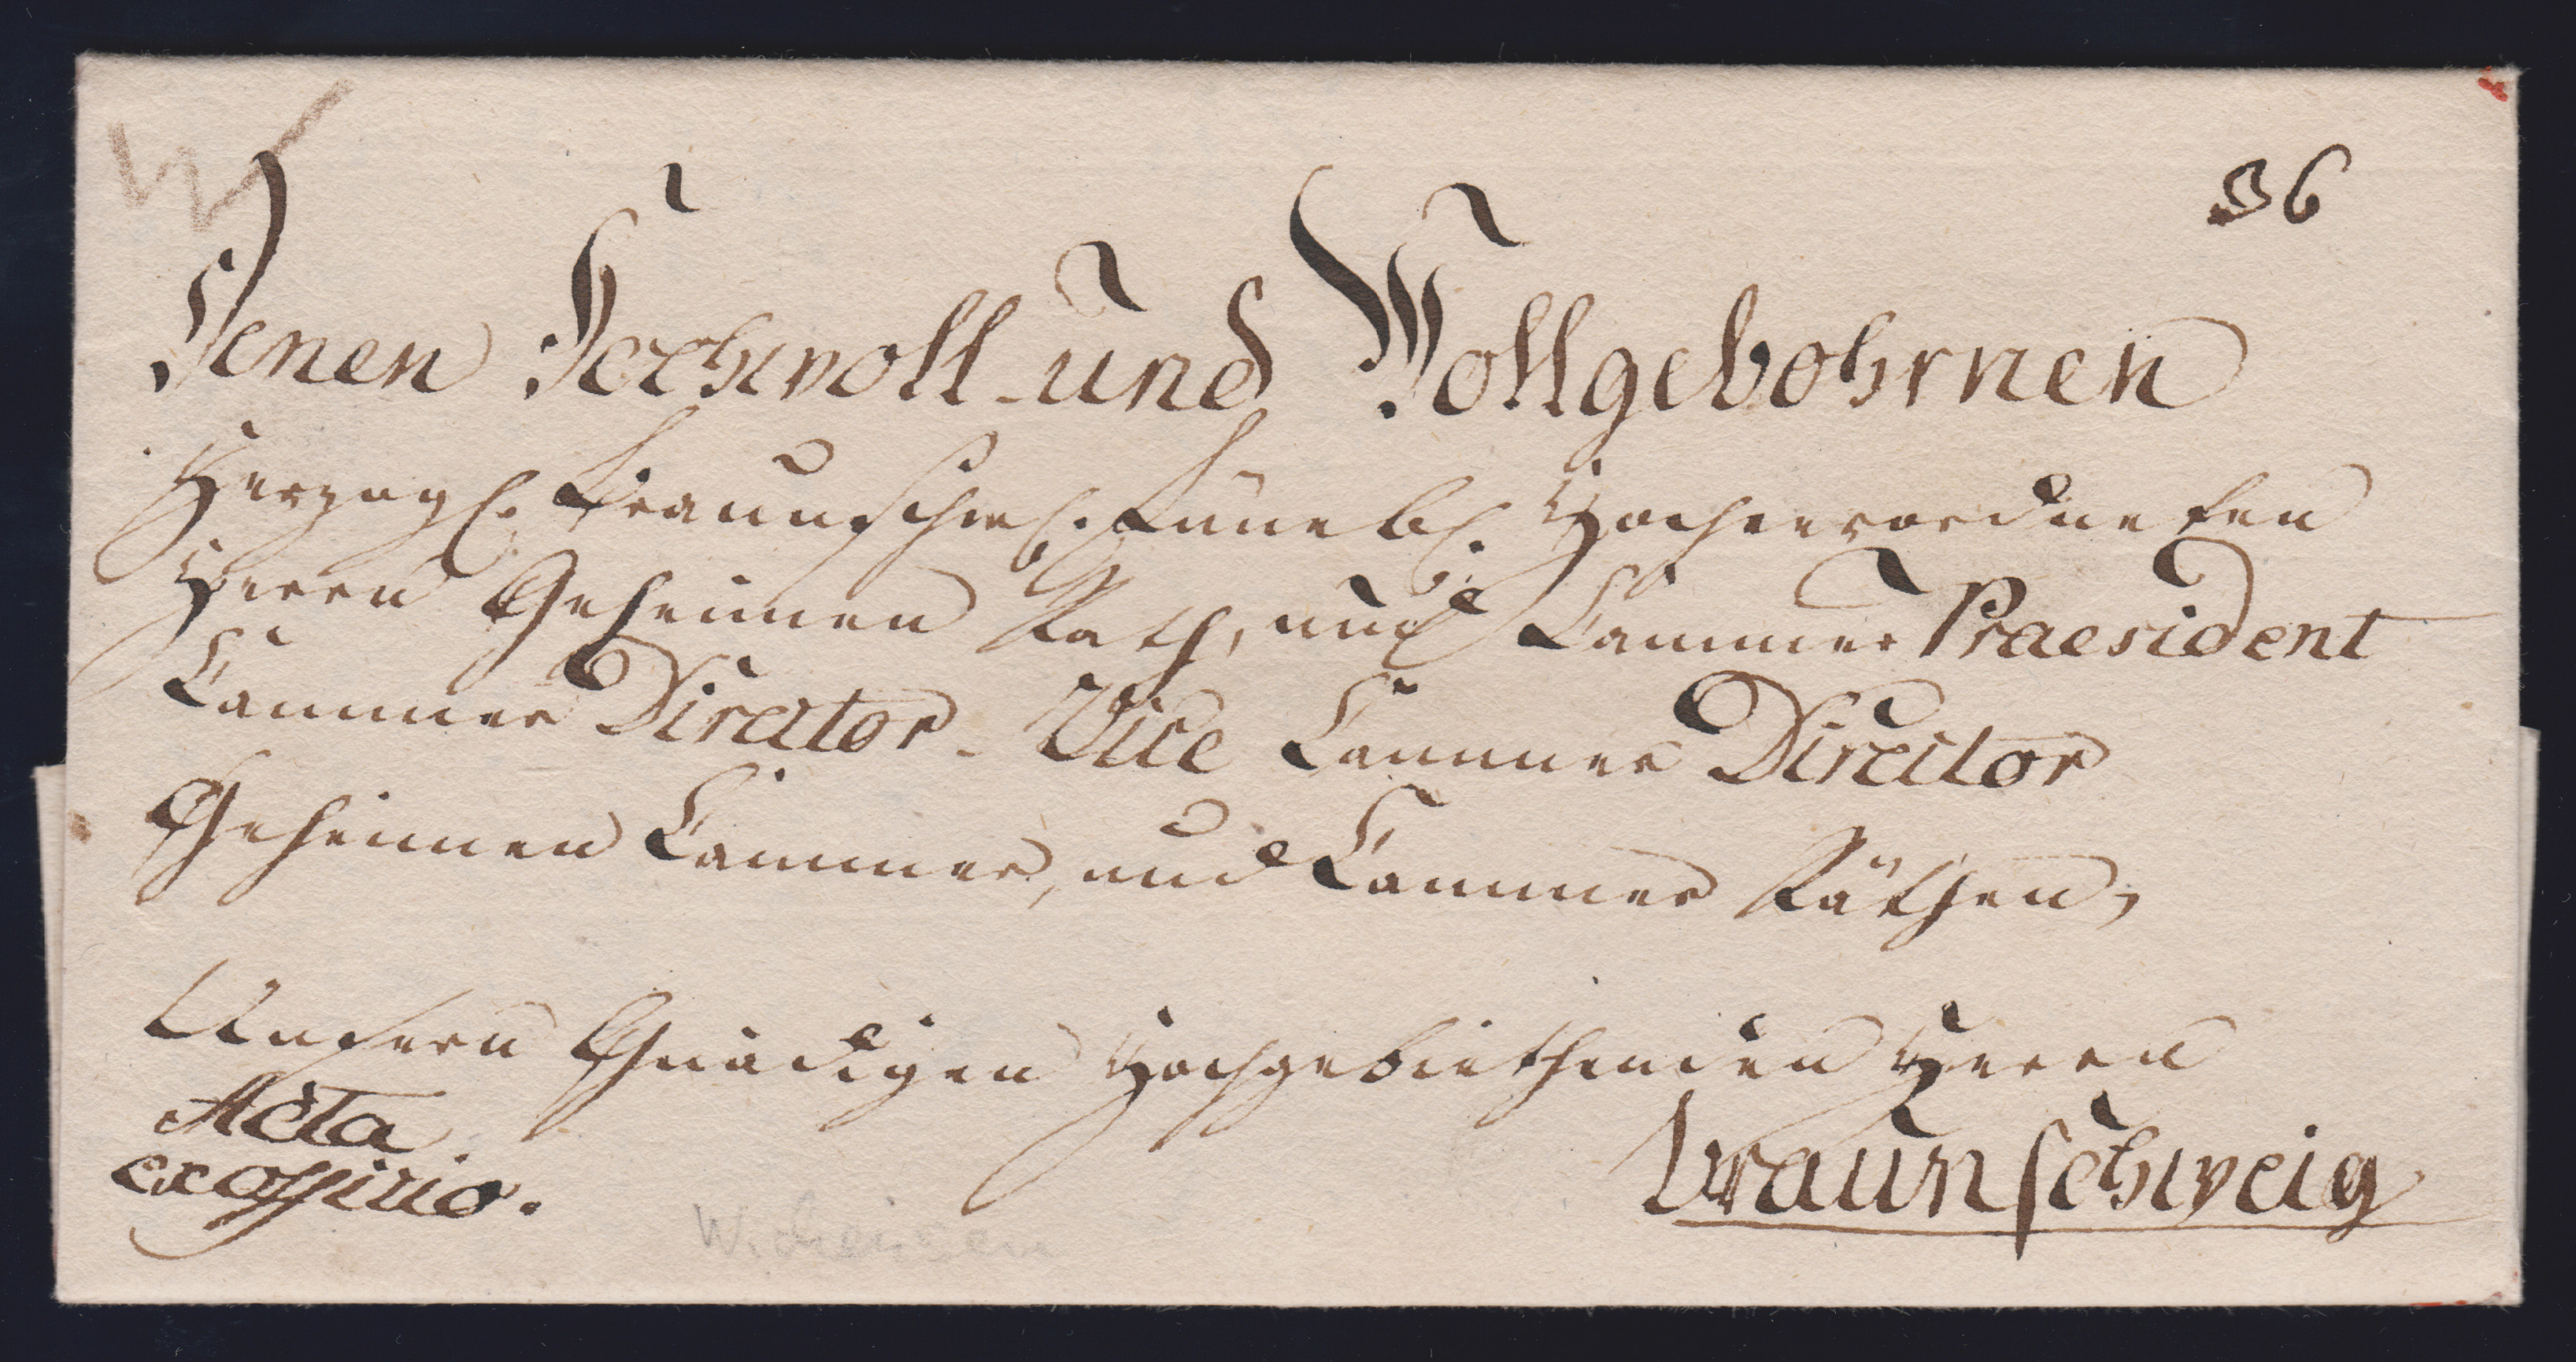 36
Denen Hochwoll und Wollgebohrnen
Herzogl. Braunschw. Lüneb. Hochverordneten
Herrn Geheimen Rath, und Cammer Praesident
Cammer Director - Vice Cammer Director
Geheimen Cammer, und Cammer Räthen,
Unsern Gnädigen Hochgebiethenden Herrn
Acta
ex officio.
Braunschweig